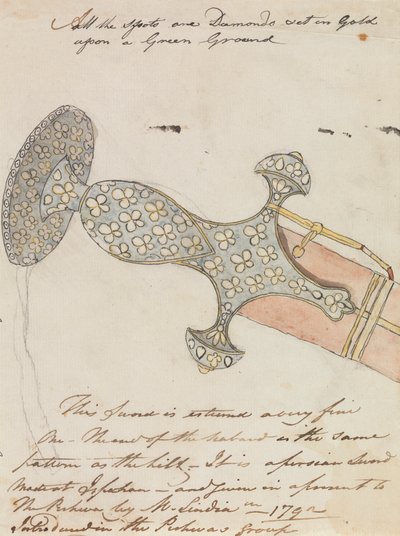 All the spots are Diamonds set in Gold
upon a Green Ground
This Sword is esteemed a very fine
One - The end of the Scabard is the same
pattern as the hilt - It is a persian Sword
made at Ispahan - and given in a present to
The Peshwa by M. Sindia in 1792
Introduced in the Peshwas group